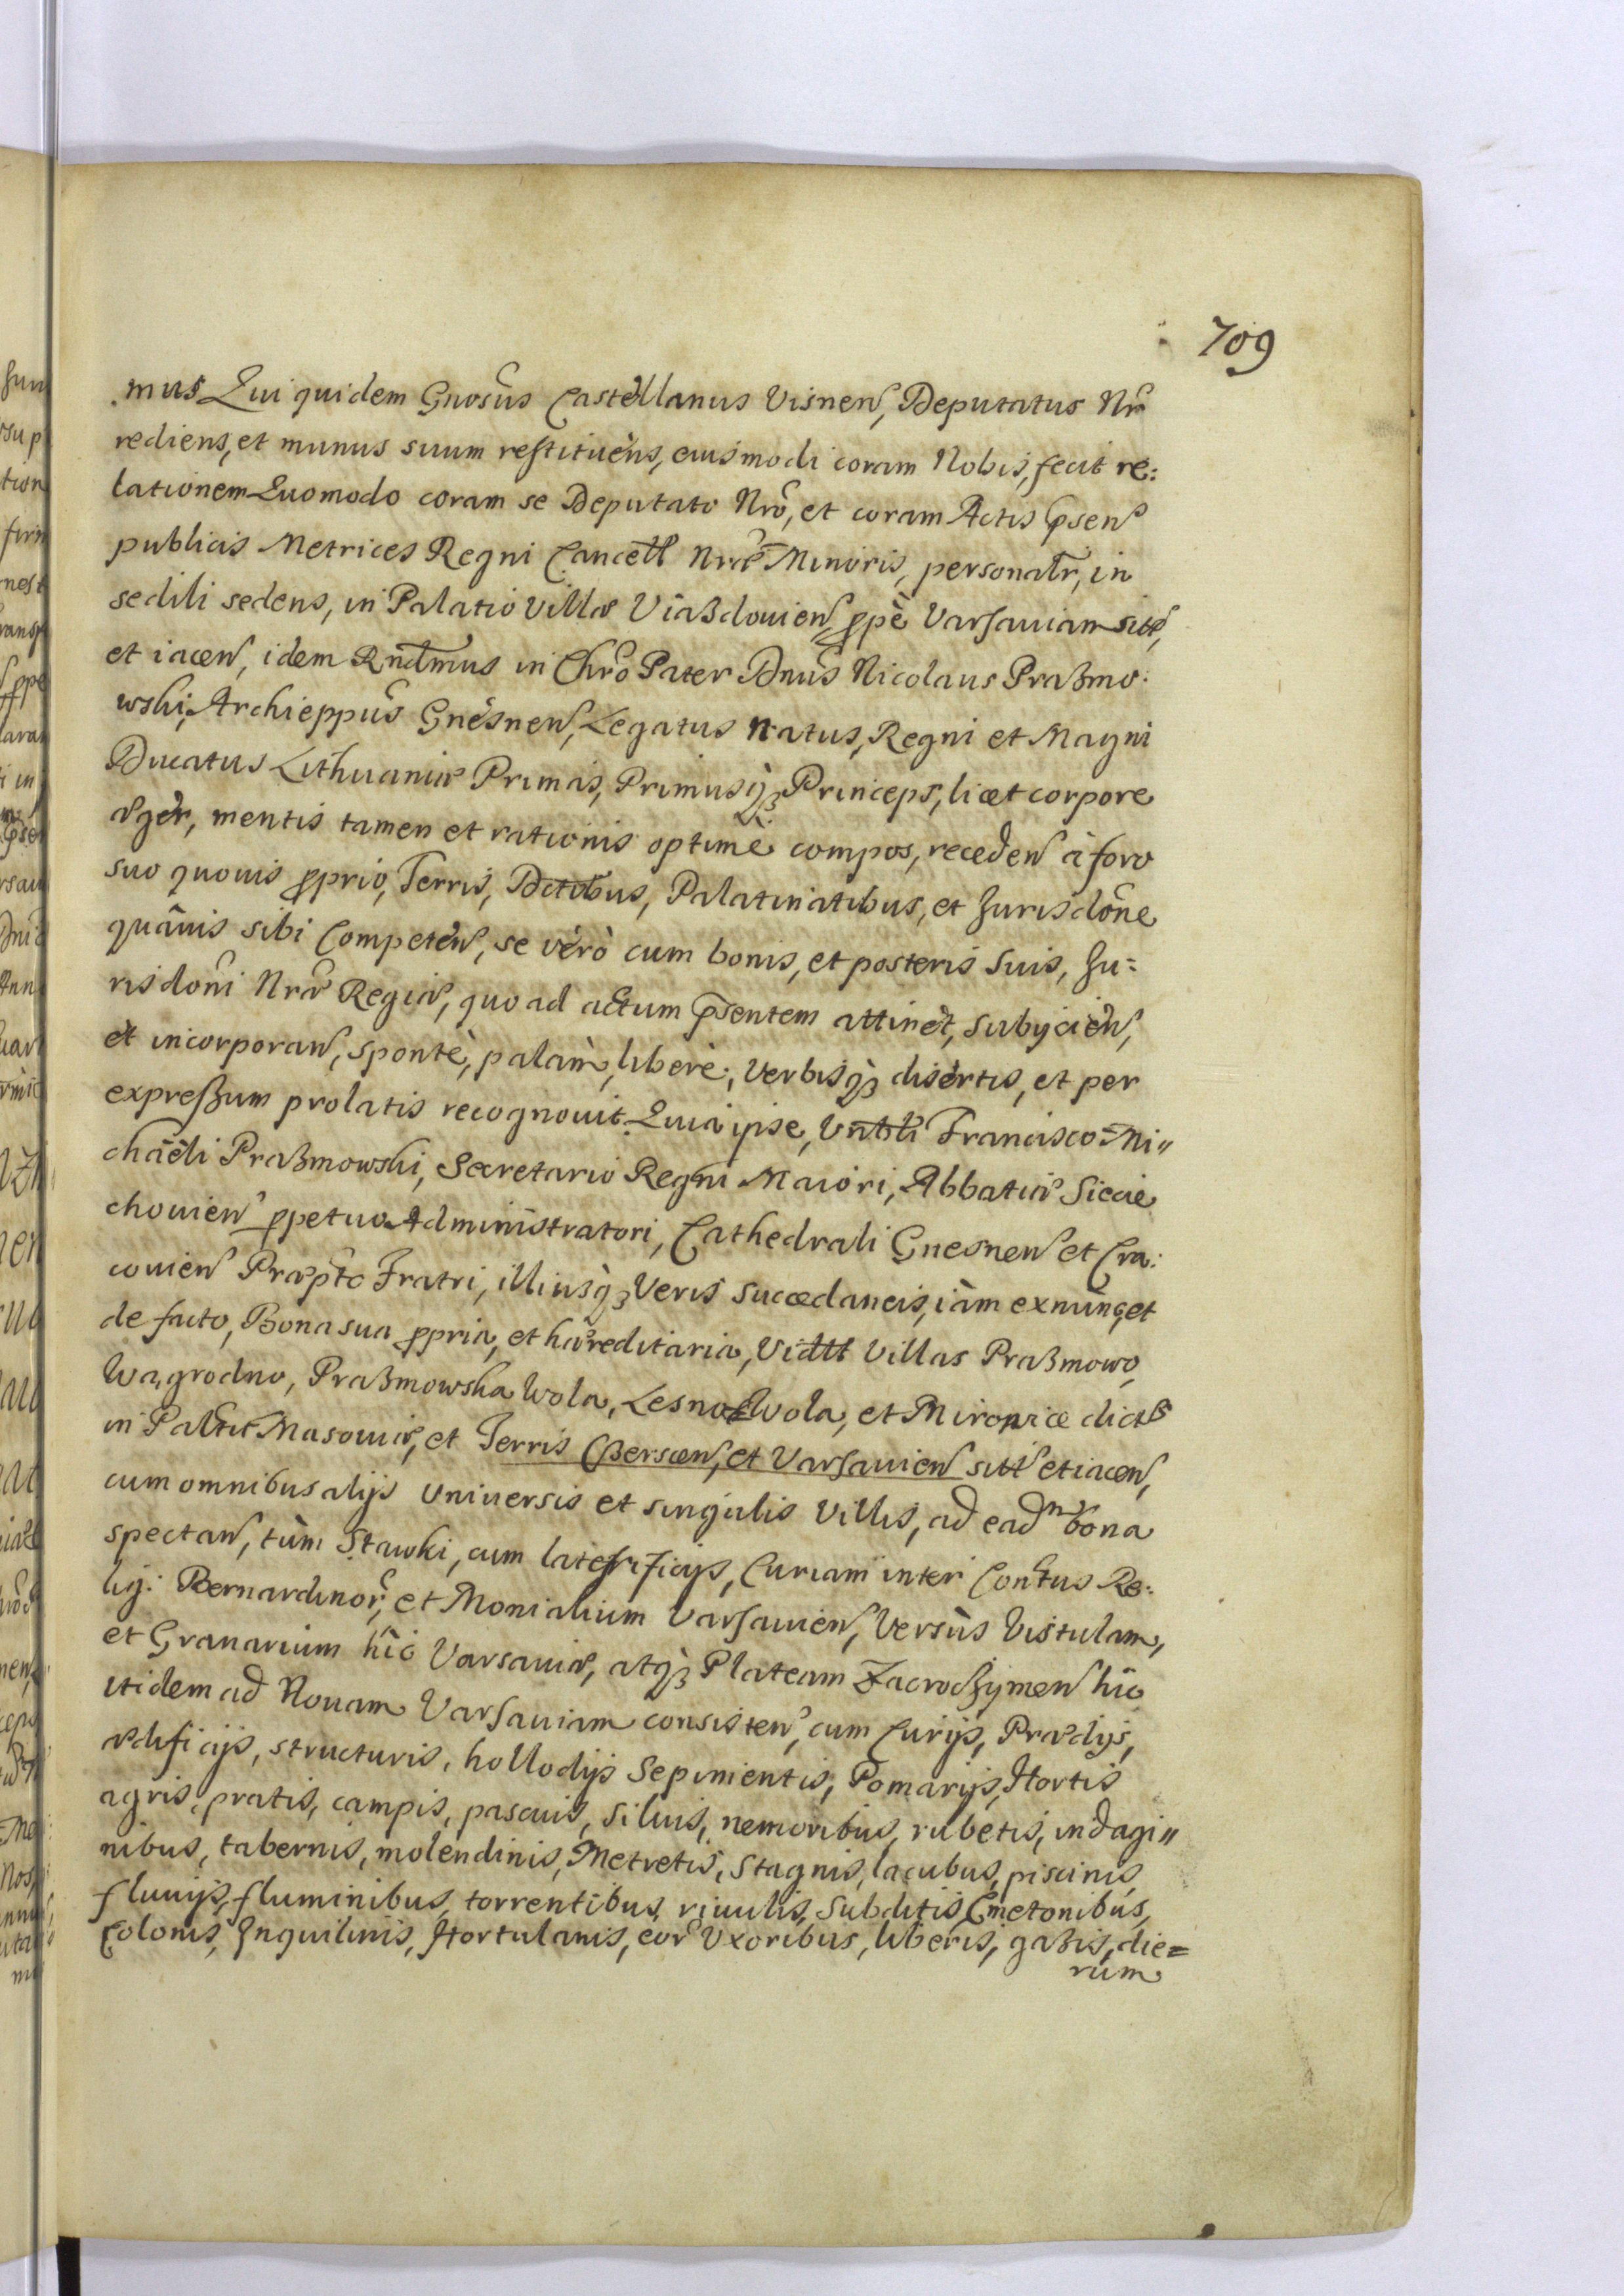 709
mus Qui quidem Gnosus Castellanus Visnen, Deputatus Nr
rediens, et munus suum restituens, eiusmodi coram Nobis, fecit re:
lationem Quomodo coram se Deputato Nro, et coram Actis psen
publicis Metrices Regni Cancell Nræ Minoris, personalr, in
sedili sedens, in Palatio Villæ Viaßdouien, ppè Varsauiam sitt,
et iacen, idem Rndmus in Chro Pater Dnus Nicolaus Praßmo:
wski, Archieppus Gnesnen, Legatus natus, Regni et Magni
Ducatus Lithuaniæ Primas, Primusq3 Princeps, licet corpore
æger, mentis tamen et rationis optimè compos, receden à foro
suo quouis pprio, Terris, Dctibus, Palatinatibus, et Jurisdone
quâuis sibi Competen, se verò cum bonis, et posteris suis, Ju=
risdoni Nræ Regiæ, quo ad actum psentem attinet, subijcien,
et incorporan, spontè, palàm, liberè, verbisq3 disertis, et per
expreßum prolatis recognouit. Quia ipse, Vnbli Francisco Mi"
chaëli Praßmowski, Secretario Regni Maiori, Abbatiæ Siecie
chouien ppetuo Administratori, Cathedrali Gnesnen et Cra:
couien Præpto Fratri, illiusq3 Veris succedaneis, iàm exnunc, et
de facto, Bona sua ppria, et hæreditaria, Vidtt Villas Praßmowo,
Wągrodno, Praßmowska Wola, Lesna Wola, et Mirowice dictas
in Paltu Masouiæ, et Terris Czerscen, et Varsauien sitt et iacen,
cum omnibus alijs vniuersis et singulis Villis, ad eadm bona
spectan, tùm Stawki, cum laterificijs, Curiam inter Contus Re:
lig: Bernardinor, et Monialium Varsauien, Versùs Vistulam,
et Granarium hic Varsauiæ, atq3 Plateam Zacroczymen hic
itidem ad Nouam Varsauiam consisten, cum Curijs, Prædijs,
ædificijs, structuris, hollodijs Sepimentis, Pomarijs, Hortis
agris, pratis, campis, pascuis, siluis, nemoribus, rubetis, indagi"
nibus, tabernis, molendinis, Metretis, Stagnis, lacubus, piscinis,
fluuijs, fluminibus, torrentibus, riuulis, Subditis, Cmetonibus,
Colonis, Inquilinis, Hortulanis, eor Vxoribus, liberis, gaßis, die=
rum